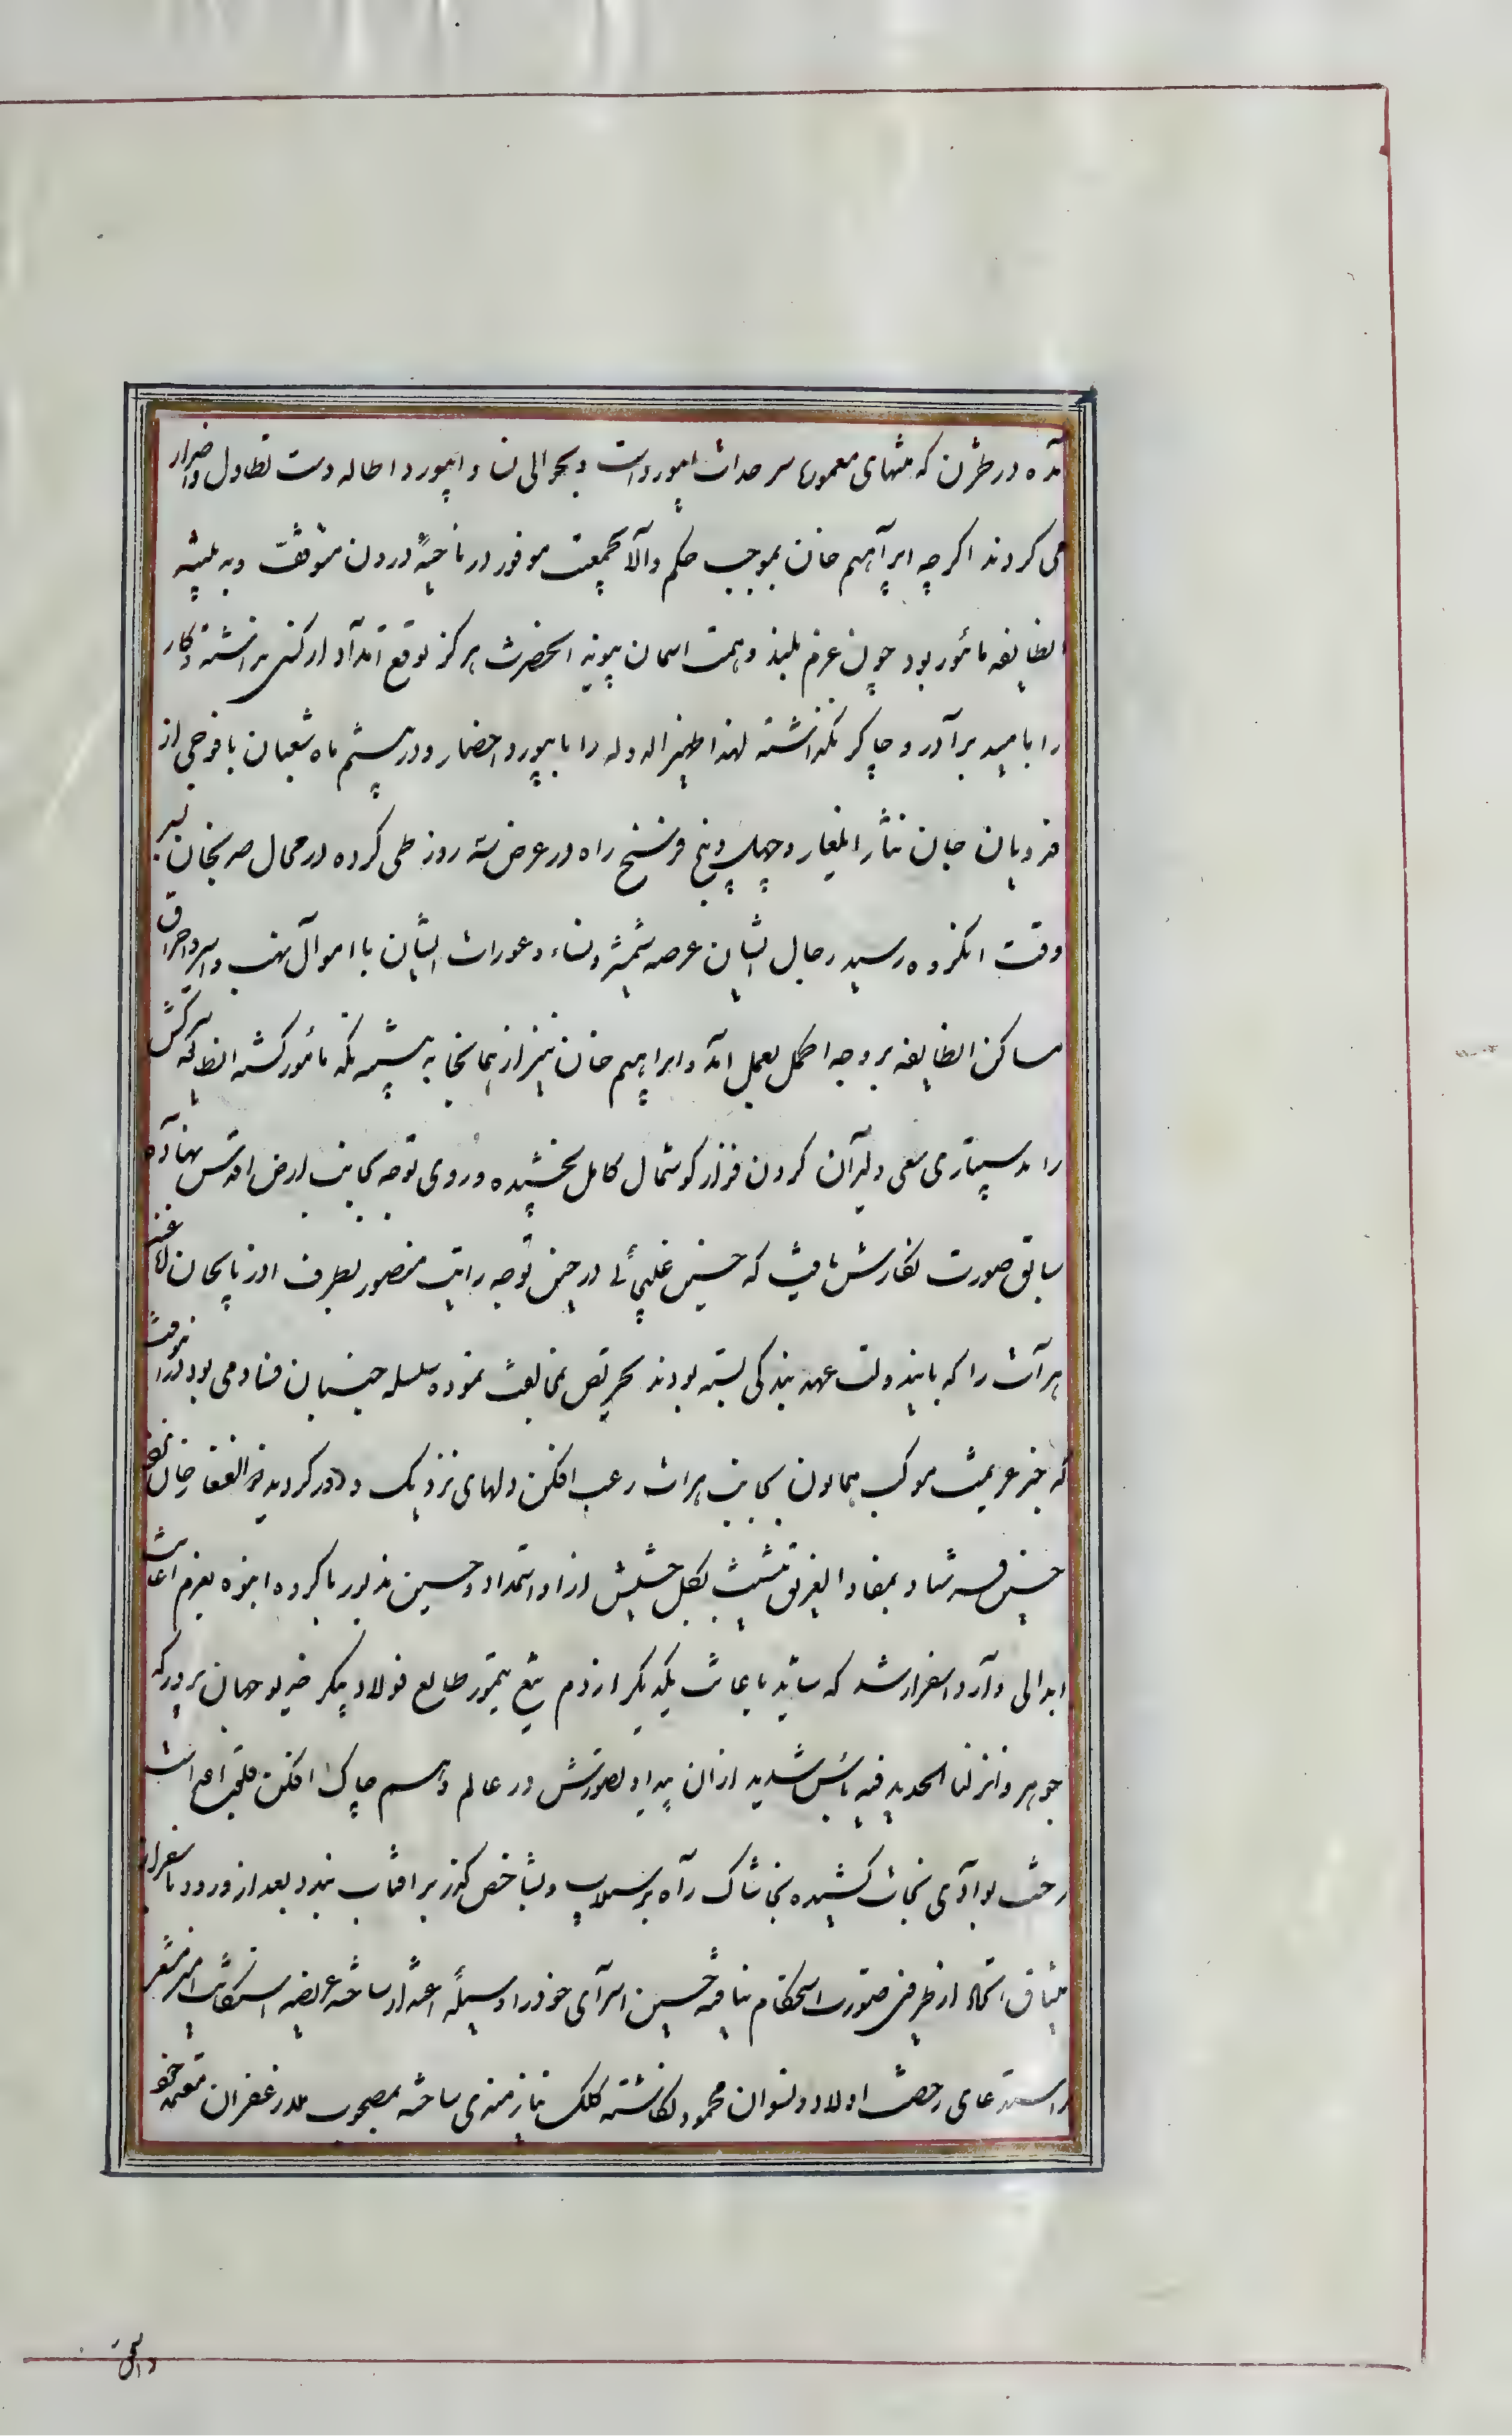 آمده در طژن که منتهای معموره سرحدات ابیورد است و بحوالی نسا و ابیورد اطاله دست تطاول و اضرار
می کردند اکرچه ابراهیم خان بموجب حکم والا بجمعیت موفور در ناحیهٔ درون متوقف و به تنبیه
انطایفه مأمور بود چون عزم بلند و همت اسمان پیوند انحضرت هرکز توقع امداد از کسی نداشته و کار
را بامید برادر و چاکر نکذاشته لهذا ظهیرالدوله را بابیورد احضار و در بیستم ماه شعبان با فوجی از
فدویان جان نثار ایلغار و چهل و پنج فرسنخ راه در عرض سه روز طی کرده در محال صریخان بسر
وقت انکروه رسید رجال ایشان عرصه شمشیر و نساء و عورات ایشان با اموال نهب و اسیر و احراق
مساکن انطایفه بر وجه اکمل بعمل امد و ابراهیم خان نیز از همانجا به تنبیه تکه مأمور کشته انطایفه سرکش
را بدستیاری سعی دلیران کردون فر از کوشمال کامل بخشیده و روی توجه بجانب ارض اقدس نهاده
سابق صورت نکارش یافت که حسین غلیجائی در حین توجه رایت منصور بطرف اذربایجان افاغنه
هرات را که باین دولت عهد بندکی بسته بودند تحریص مخالفت نموده سلسله جنبان فساد می بود در انوقت
که خبر عزیمت موکب همایون بجانب هرات رعب افکن دلهای نزدیک و دور کردید ذوالفقار خان
حسین فرستاد بمفاد الغریق یتشبث بکل حشیش از او استمداد و حسین مذبور با کروه انبوه بعزم اعانت
ابدالی وارد اسفزار شد که شاید باعانت یکدیکر از دم تیغ تیمور طالع فولاد پیکر خدیو جهان پرور که
جوهر و انزلنا الحدید فیه بأس شدید از ان پیدا و تصورش در عالم وهم چاک افکن قلب اعداست
رخت بوادی نجات کشیده بخاشاک راه بر سیلاب و بشاخص کوز بر افتاب بندد بعد از ورود باسفزار
میثاق اتحاد از طرفین صورت استحکام نیافته حسین اسرای خود را وسیلهٔ اعتذار ساخته عریضه استکانت امیز مشعر
بر استدعای رخصت اولاد و نسوان محمود نکاشته کلک نیازمندی ساخته بمصحوب ملا زعفران معتمد خود